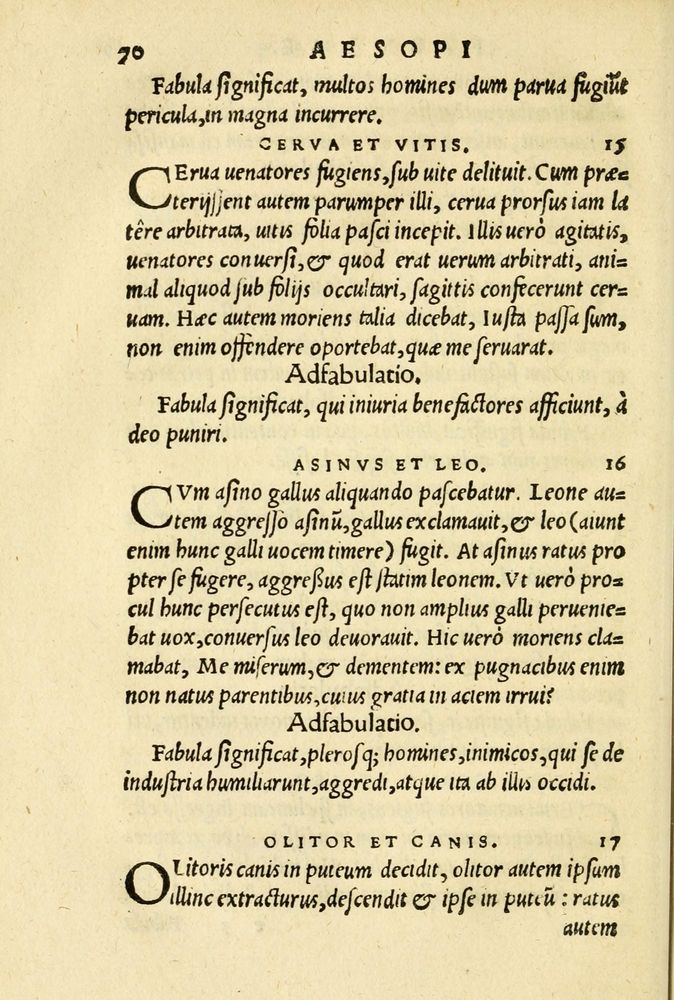 70 AESOPI
Fabula ſignificat, multos homines dum parua fugiũt
pericula, in magna incurrere.
CERVA ET VITIS. 15
CErua uenatores fugiens, ſub uite delituit. Cum præ=
terijſſent autem parumper illi, cerua prorſus iam la
têre arbitrata, uitis folia paſci incepit. Illis uerò agitatis,
uenatores conuerſi, & quod erat uerum arbitrati, ani=
mal aliquod ſub folijs occultari, ſagittis confecerunt cer=
uam. Hæc autem moriens talia dicebat, Iuſta paſſa ſum,
non enim offendere oportebat, quæ me ſeruarat.
Adfabulatio.
Fabula ſignificat, qui iniuria benefactores afficiunt, à
deo puniri.
ASINVS ET LEO. 16
CVm aſino gallus aliquando paſcebatur. Leone au=
tem aggreſſo aſinũ, gallus exclamauit, & leo (aiunt
enim hunc galli uocem timere) fugit. At aſinus ratus pro
pter ſe fugere, aggreßus eſt ſtatim leonem. Vt uerò pro=
cul hunc perſecutus eſt, quo non amplius galli peruenie=
bat uox, conuerſus leo deuorauit. Hic uerò moriens cla=
mabat, Me miſerum, & dementem: ex pugnacibus enim
non natus parentibus, cuius gratia in aciem irrui?
Adfabulatio.
Fabula ſignificat, pleroſq; homines, inimicos, qui ſe de
induſtria humiliarunt, aggredi, atque ita ab illis occidi.
OLITOR ET CANIS. 17
OLitoris canis in puteum decidit, olitor autem ipſum
illinc extracturus, deſcendit & ipſe in puteũ : ratus
autem